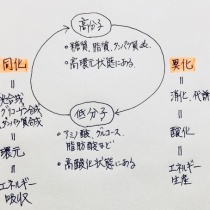 高分子
・糖質、脂質、タンパク質など
・高還元状態にある
同化
=
光合成
グリコーゲン合成
タンパク質合成
=
還元
=
エネルギー
吸収
低分子
・アミノ酸、グルコース、
脂肪酸など
・高酸化状態にある
異化
=
消化、代謝
=
酸化
=
エネルギー
生産